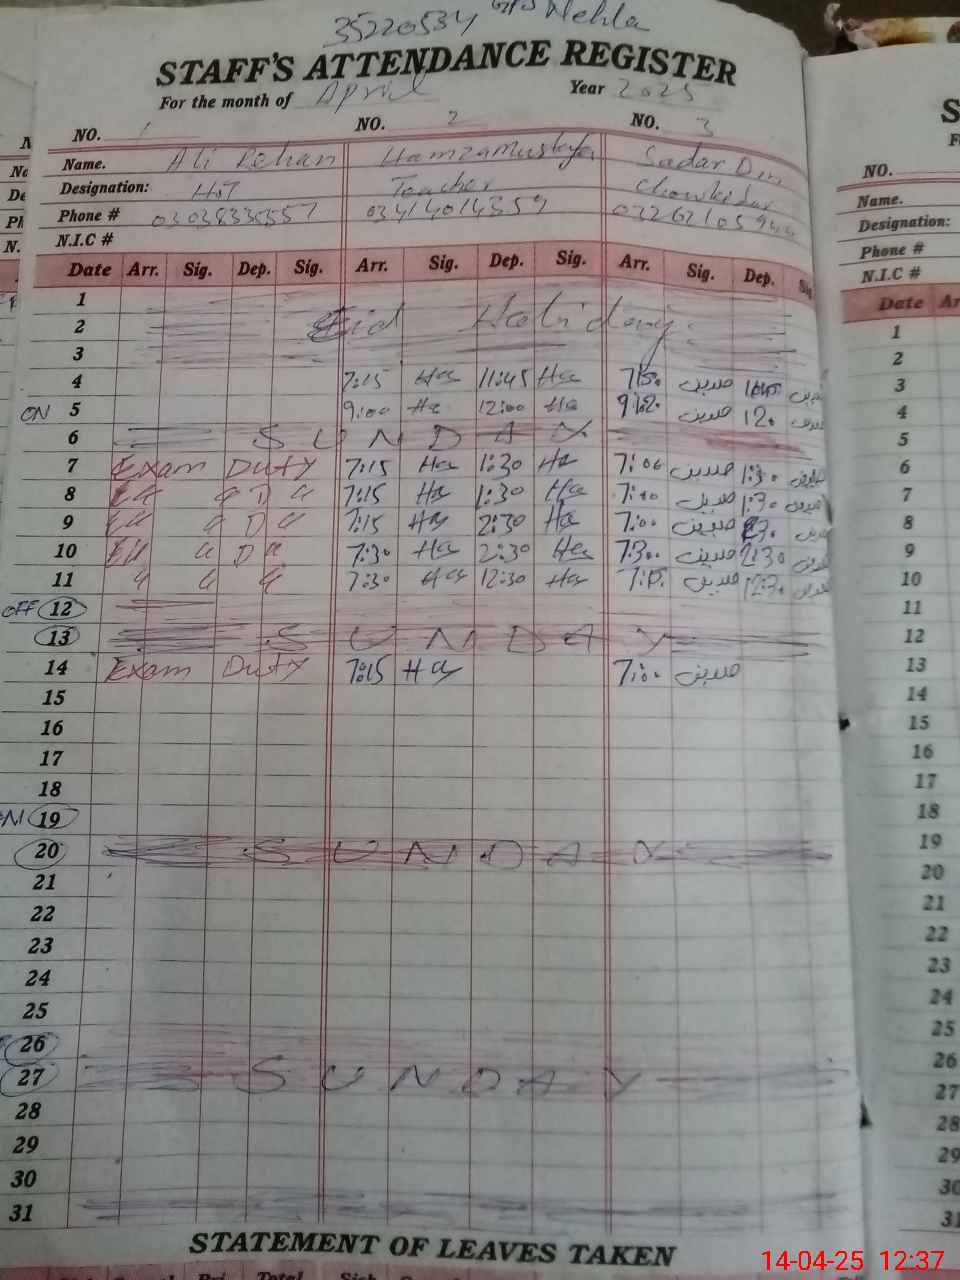 35220534 GPS Nehla
STAFF'S ATTENDANCE REGISTER
For the month of April Year 2025
NO. 1 NO. 2 NO. 3
Name. Ali Rehan Hamza Mustafa Sadar Din
Designation: H.T Teacher Chowkidar
Phone # 03414014359
N.I.C #
Date Arr. Sig. Dep. Sig. Arr. Sig. Dep. Sig. Arr. Sig. Dep. Sig.
1
2 Eid Holiday.
3
4 7:15 Ha 11:45 Ha
ON 5 9:00 Ha 12:00 Ha 12
6 SUNDAY
7 Exam Duty 7:15 Ha 1:30 Ha 7:00 1:30
8 " D " 7:15 Ha 1:30 Ha 7:00 1:30
9 " D " 7:15 Ha 2:30 Ha 7:00
10 " D " 7:30 Ha 2:30 Ha 2:30
11 " " " 7:30 Ha 12:30 Ha 12:30
OFF 12
13 SUNDAY
14 Exam Duty 7:15 Ha 7:00
15
16
17
18
19
20 SUNDAY
21
22
23
24
25
26
27 SUNDAY
28
29
30
31
STATEMENT OF LEAVES TAKEN
NO.
Name.
Designation:
Phone #
N.I.C #
Date
1
2
3
4
5
6
7
8
9
10
11
12
13
14
15
16
17
18
19
20
21
22
23
24
25
26
27
28
29
30
31
14-04-25 12:37